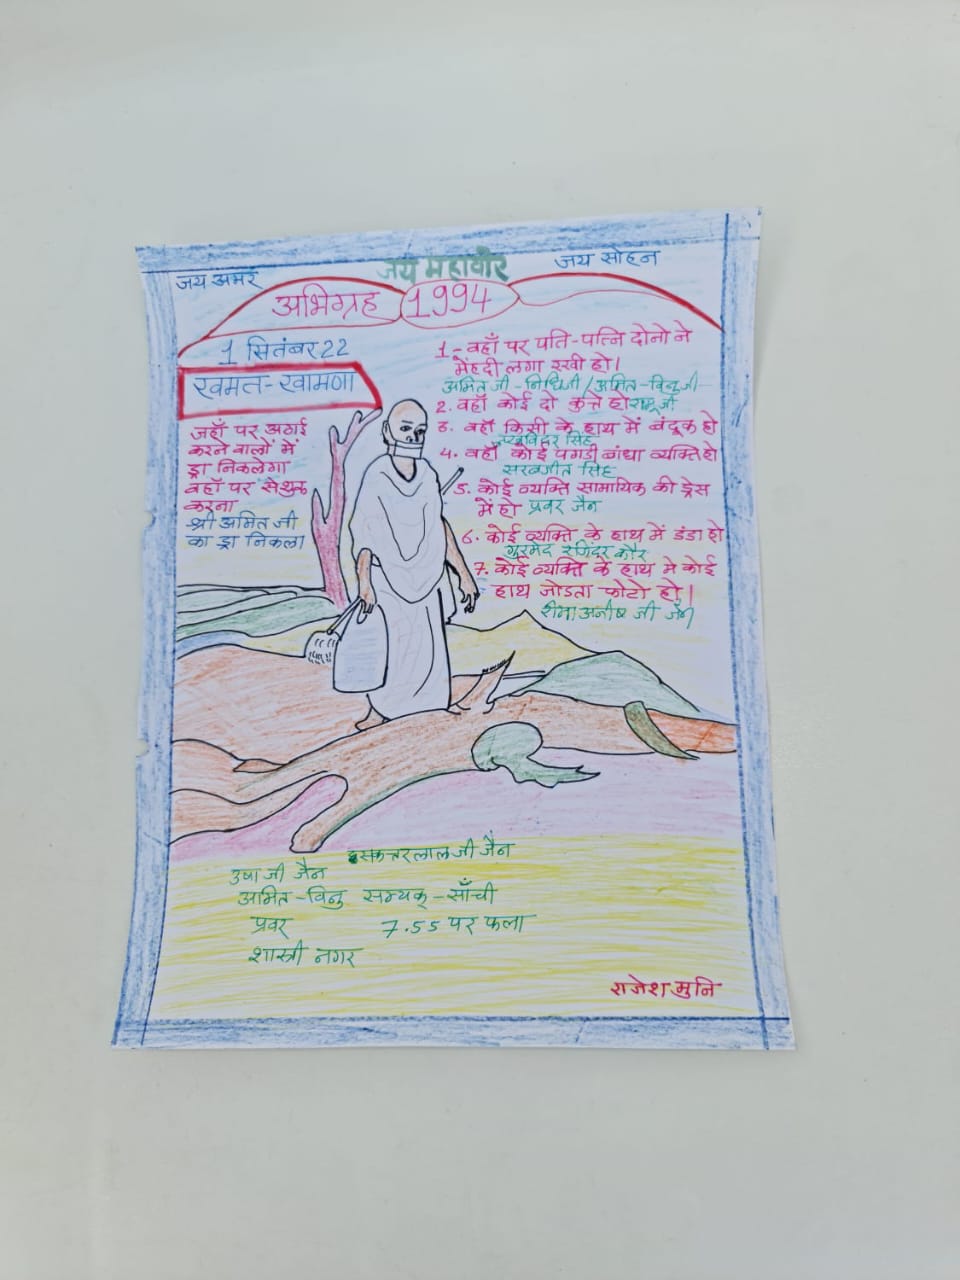 जय अमर
जय महावीर
जय सोहन
अभिग्रह
1994
1 सितंबर 22
खमत-खामणा
जहाँ पर अठाई
करने वालों में
ड्रा निकलेगा
वहाँ पर से शुरू
करना
श्री अमित जी
का ड्रा निकला
1- वहाँ पर पति-पत्नि दोनो ने
मेंहदी लगा रखी हो।
अमित जी - निधि जी / अमित-विनु जी
2. वहाँ कोई दो कुत्ते हो रामू जी
3. वहाँ किसी के हाथ में बंदूक हो
सिंह
4. वहाँ कोई पगडी बांधा व्यक्ति हो
सरबजीत सिंह
5. कोई व्यक्ति सामायिक की ड्रेस
में हो प्रवर जैन
6. कोई व्यक्ति के हाथ में डंडा हो
गुरमेद रजिंदर कौर
7. कोई व्यक्ति के हाथ मे कोई
हाथ जोडता फोटो हो।
सीमा अनीष जी जैन
लाल जी जैन
उषा जी जैन
अमित-विनु सम्यक्-साँची
प्रवर 7.55 पर फला
शास्त्री नगर
राजेश मुनि